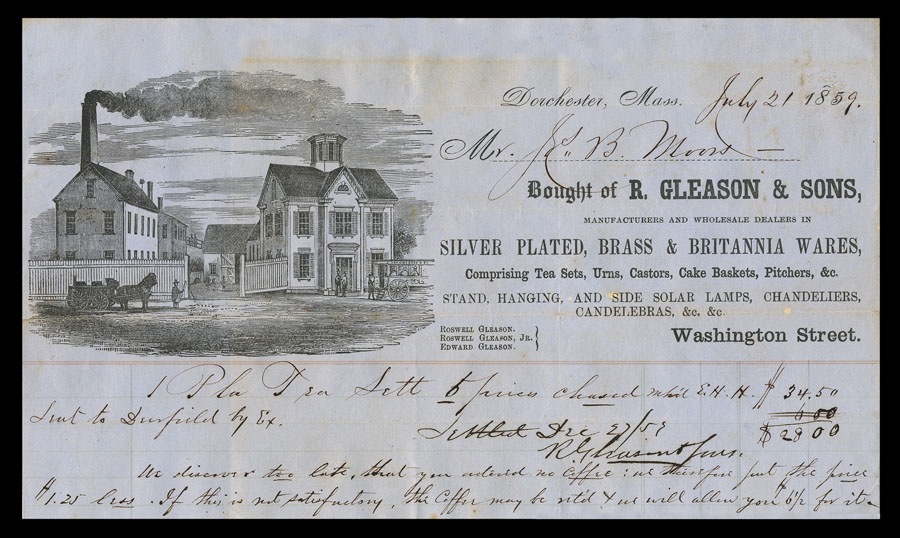 Dorchester, Mass. July 21 1859.
Mr. Jos. B. Moors
Bought of R. GLEASON & SONS,
MANUFACTURERS AND WHOLESALE DEALERS IN
SILVER PLATED, BRASS & BRITANNIA WARES,
Comprising Tea Sets, Urns, Castors, Cake Baskets, Pitchers, &c.
STAND, HANGING, AND SIDE SOLAR LAMPS, CHANDELIERS,
CANDELEBRAS, &c. &c.
ROSWELL GLEASON.
ROSWELL GLEASON, JR.
EDWARD GLEASON.
Washington Street.
1 Pla Tea Sett 6 pieces chased E. H. H. $34.50
Sent to Deerfield by Ex. 6 00
Settled Dec 27/59 $28 00
R Gleason & Sons.
We discover too late, that you ordered no Coffee: we therefore put the price
$1.25 less. If this is not satisfactory, the Coffee may be retd & we will allow you for it